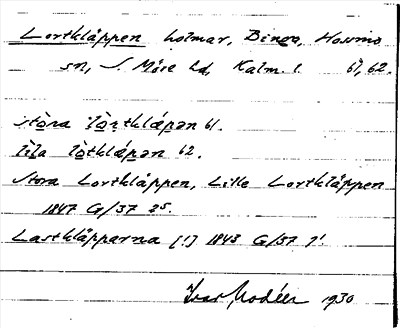 Lortkläppen holmar, Bingö, Hossmo
sn, S. Möre hd, Kalm. l. 61, 62.
stōra lòrtklæpən 61.
lìla lòtklæpən 62.
Stora Lortkläppen, Lille Lortkläppen
1847 G/37 25.
Lastkläpparna [!] 1843 G/37 7¹.
Ivar Modéer 1930